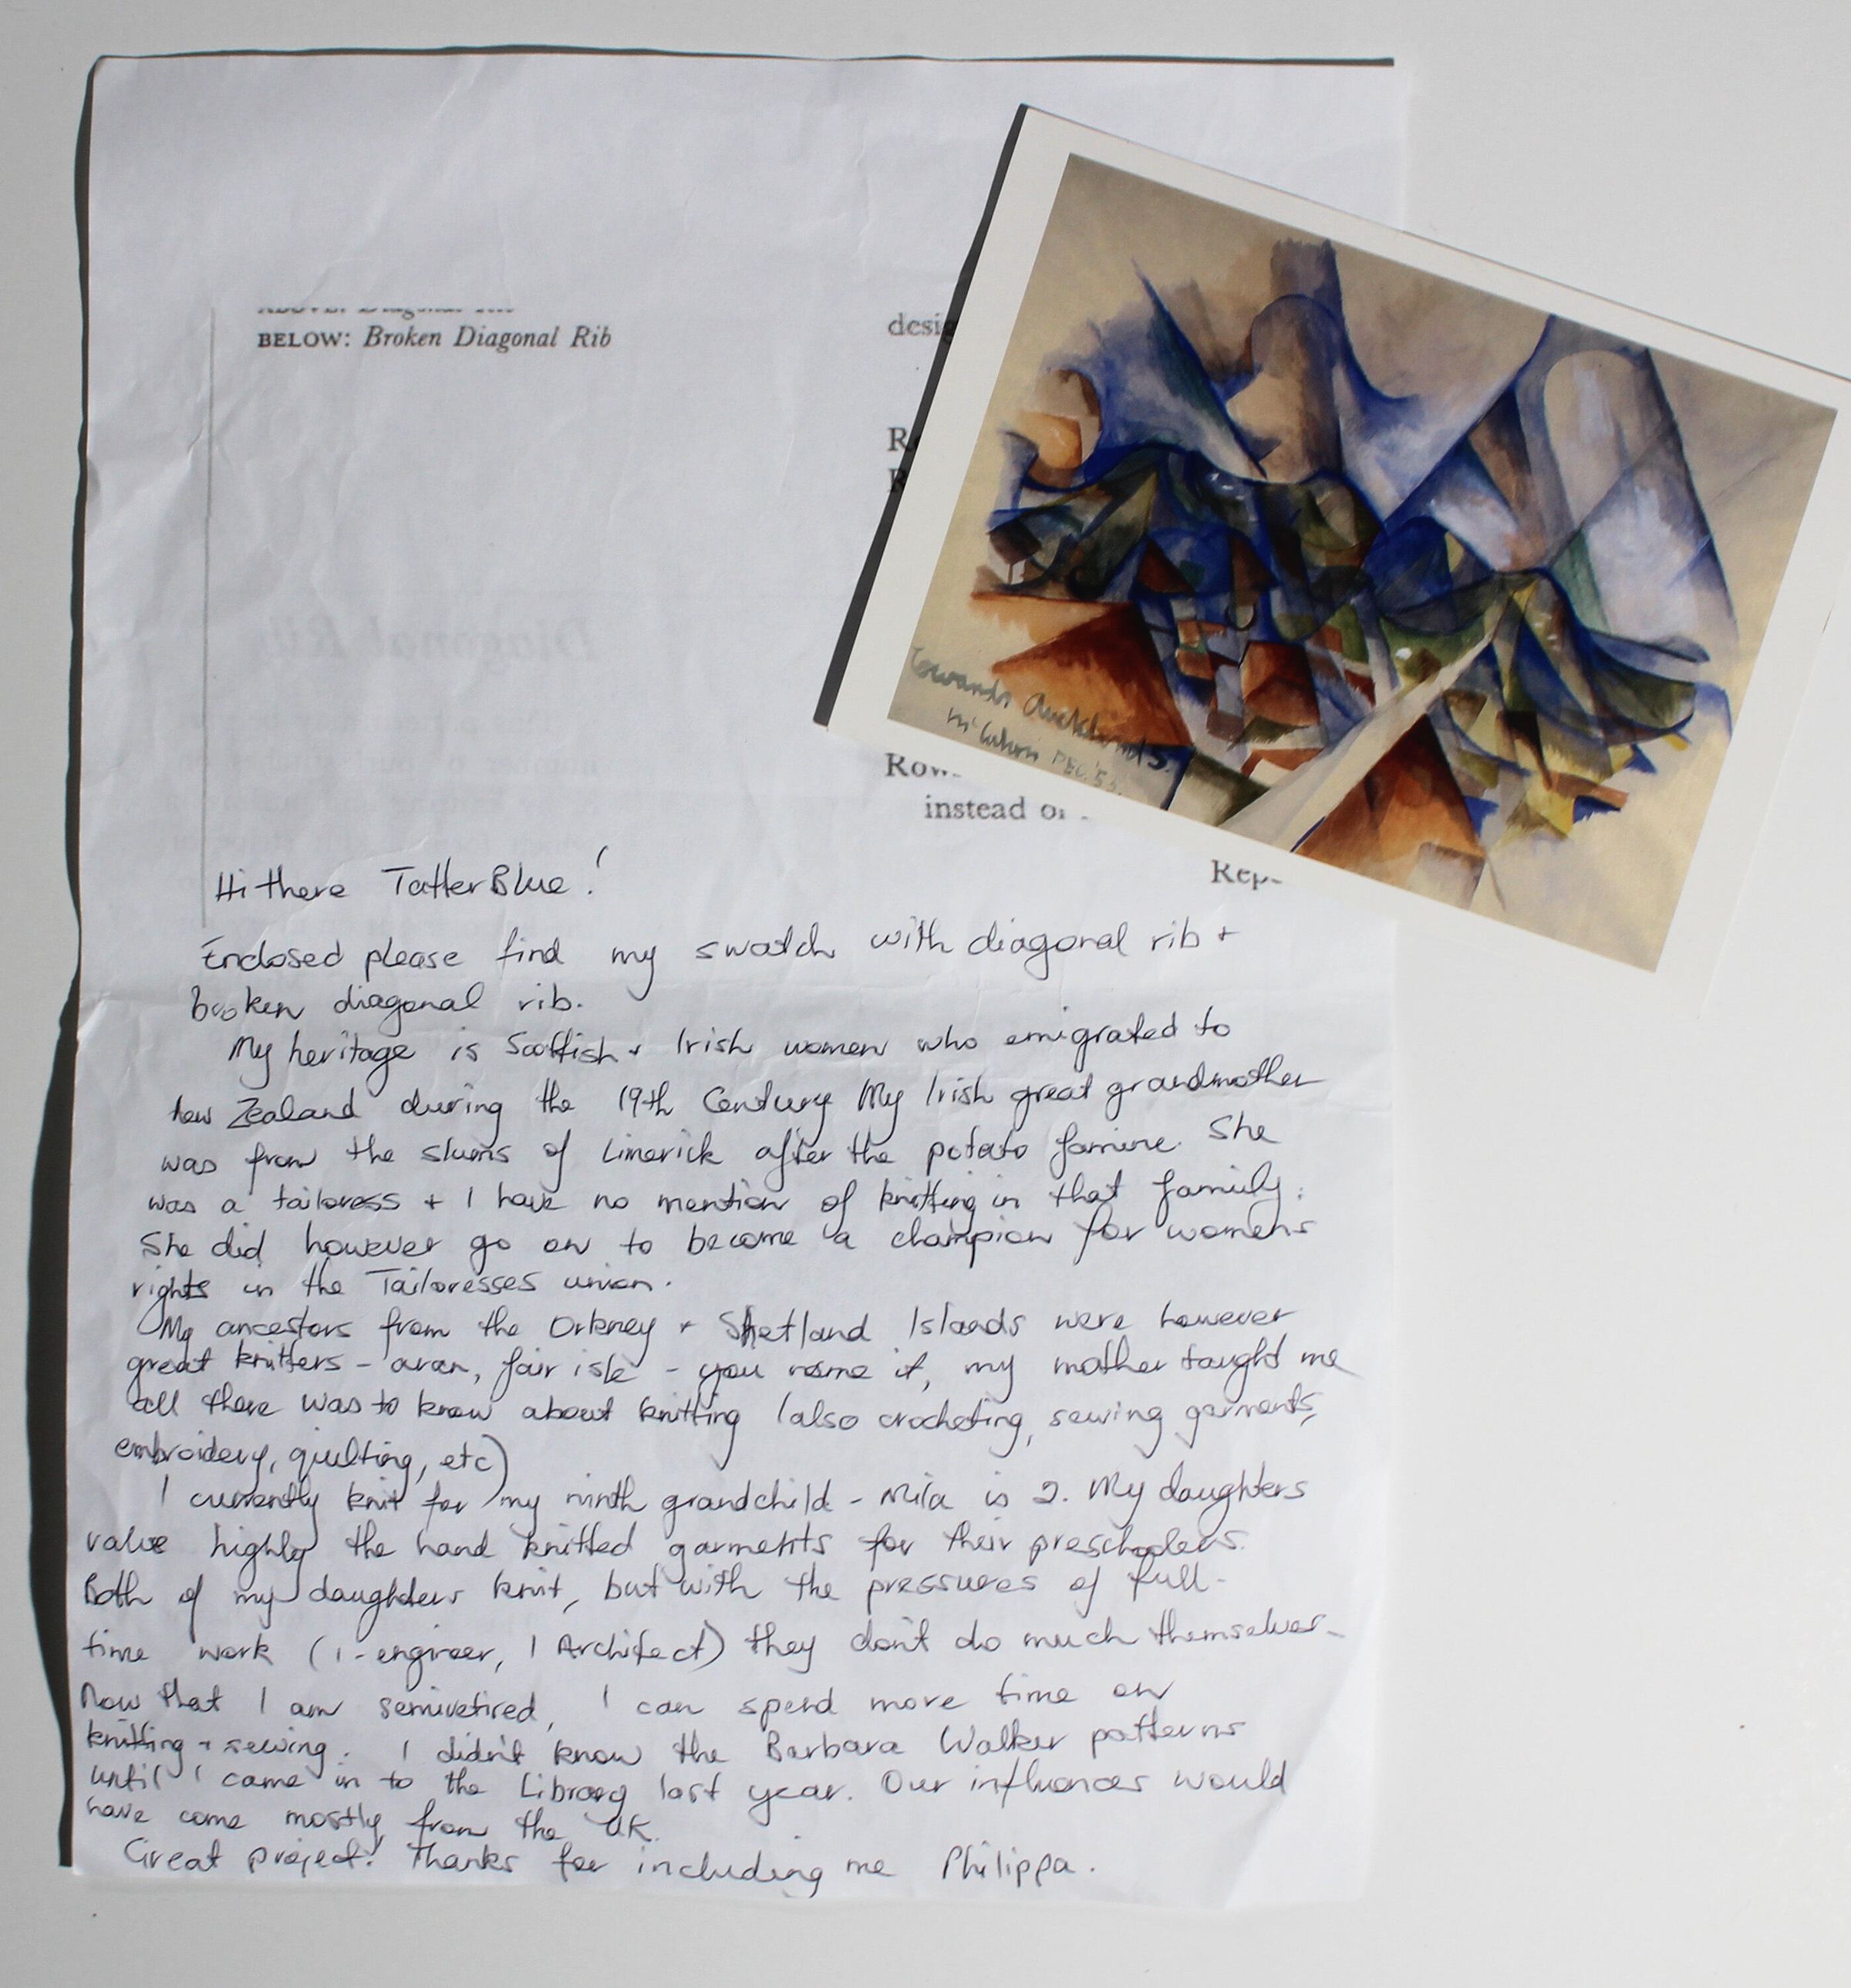 BELOW: Broken Diagonal Rib
desig
R
R
Row
instead o
Rep
Diagonal Rib
Towards Auckland 5.
McCahon DEC. '53.
Hi there TatterBlue!
Enclosed please find my swatch with diagonal rib +
broken diagonal rib.
My heritage is Scottish + Irish women who emigrated to
New Zealand during the 19th Century My Irish great grandmother
was from the slums of Limerick after the potato famine. She
was a tailoress + I have no mention of knitting in that family.
She did however go on to become a champion for womens
rights in the Tailoresses union.
My ancestors from the Orkney + Shetland Islands were however
great knitters - aran, fair isle - you name it, my mother taught me
all there was to know about knitting (also crocheting, sewing garments,
embroidery, quilting, etc)
I currently knit for my ninth grandchild - Mila is 2. My daughters
value highly the hand knitted garments for their preschoolers.
Both of my daughters knit, but with the pressures of full-
time work (1-engineer, 1 Architect) they don't do much themselves-
Now that I am semiretired, I can spend more time on
knitting + sewing. I didn't know the Barbara Walker patterns
until I came in to the Library last year. Our influences would
have come mostly from the UK.
Great project! Thanks for including me Philippa.